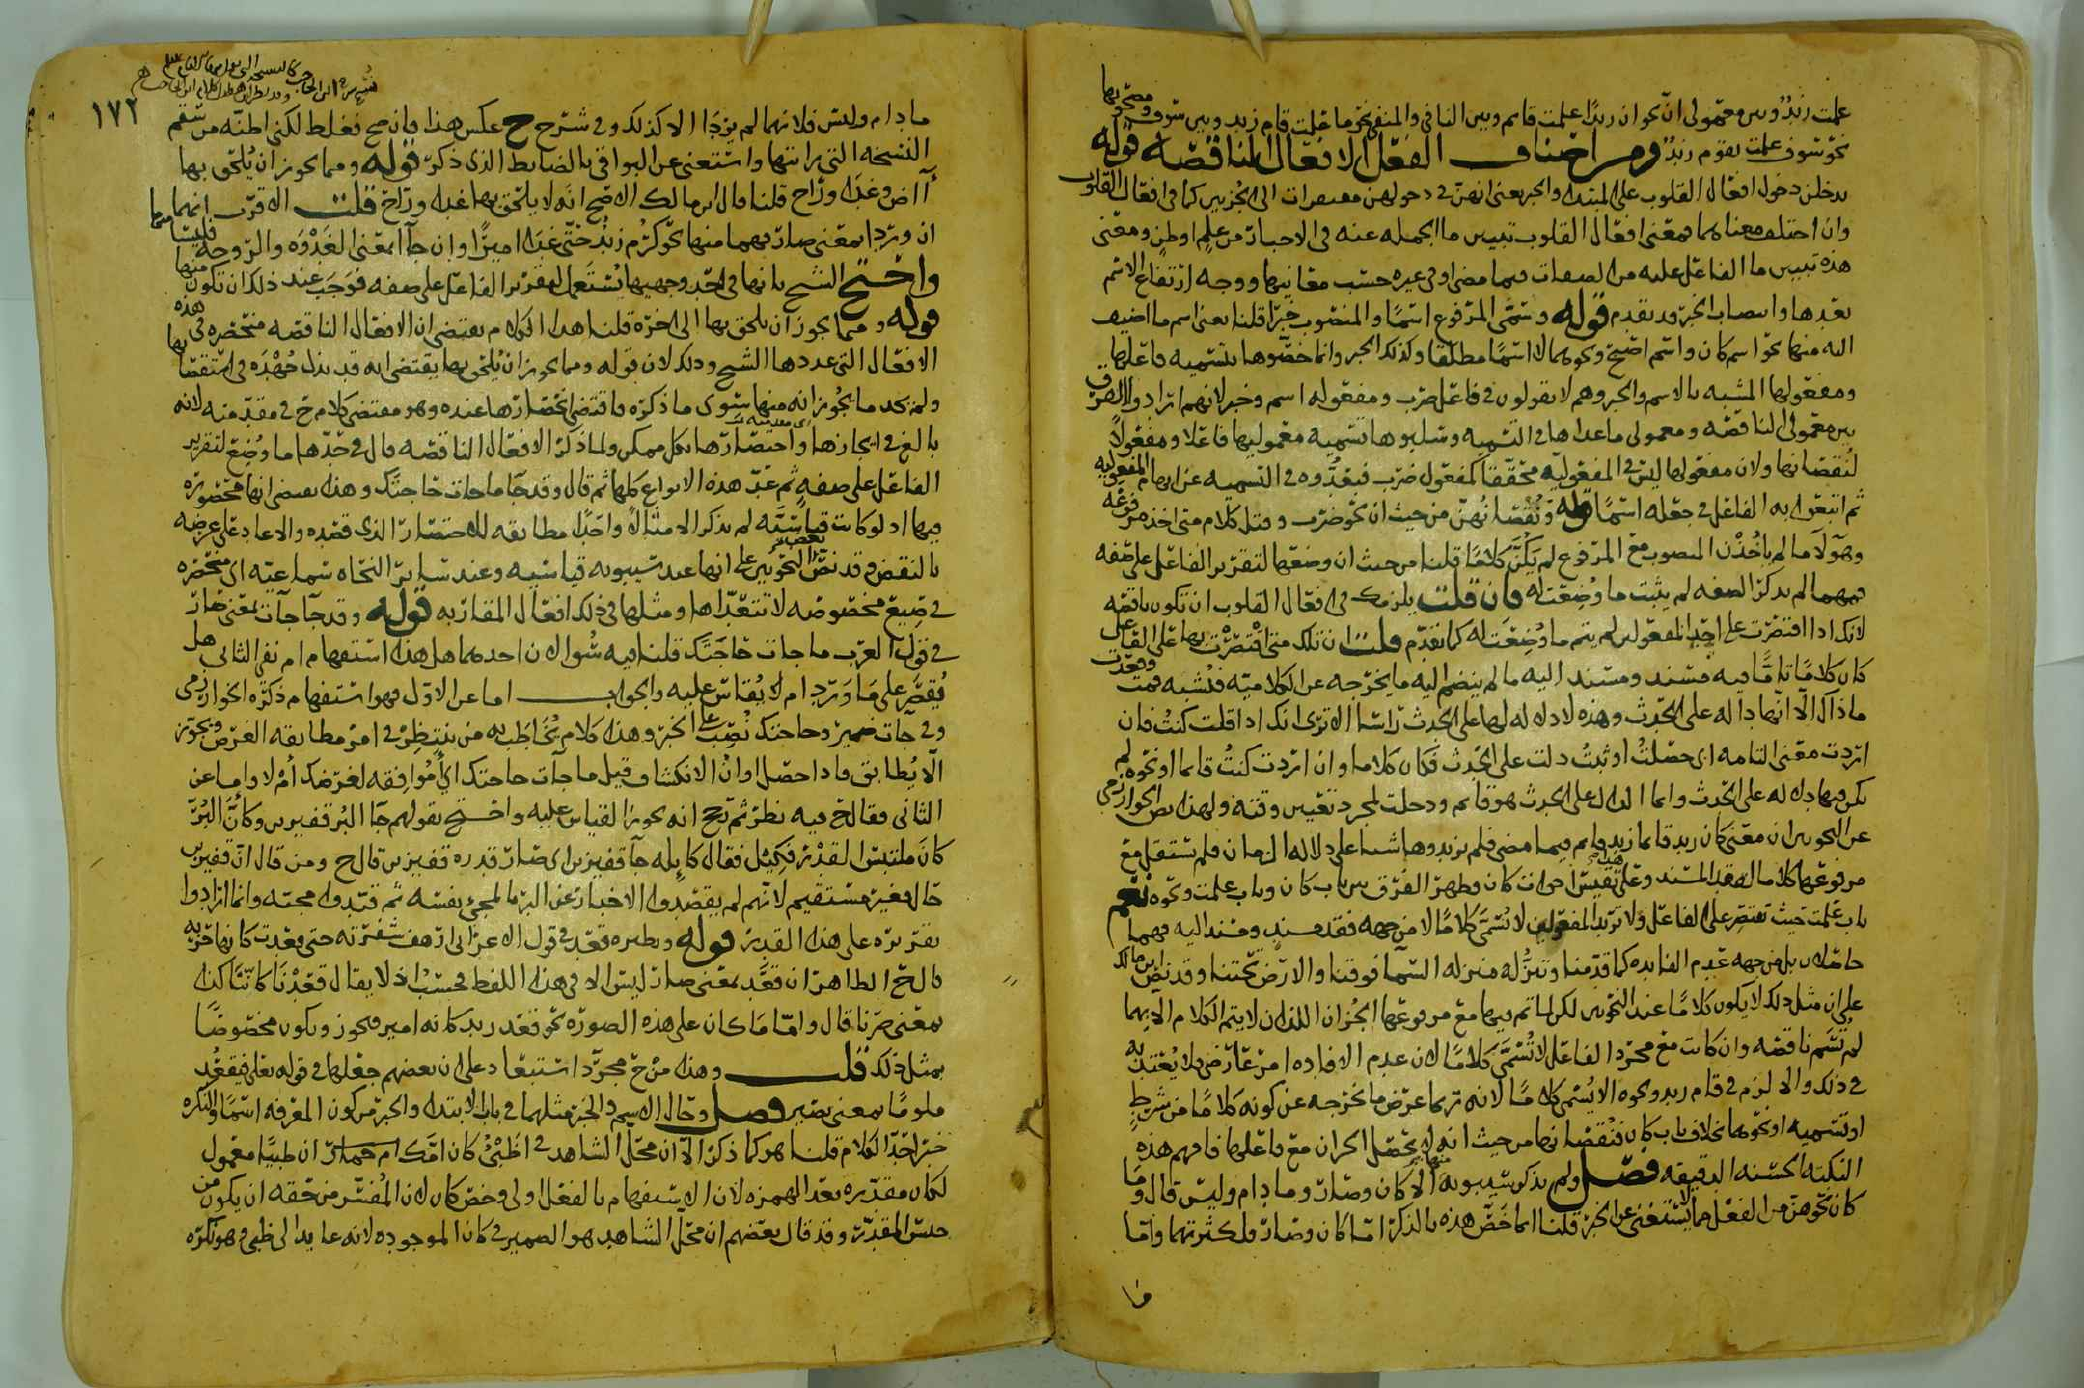 علمت زيد وبين معمولى ان نحو ان زيدا علمت قائم وبين النافى والمنفى نحو ما علمت قام زيد وبين سوف ومصحوبها
نحو سوف علمت يقوم زيد ومن اصناف الفعل الافعال الناقصة قوله
يدخلن دخول افعال القلوب على المبتدا والخبر يعنى انهن فى دخولهن الى الجزئين كما فى افعال القلوب
وان اختلف معناهما فمعنى افعال القلوب تبيين ما الجملة عنه فى الاخبار من علم او ظن ومعنى
هذه تبيين ما الفاعل عليه من الصفات فيما مضى او فى غيره حسب معانيها ووجه ارتفاع الاسم
بعدها وانتصاب الخبر قد تقدم قوله ويسمى المرفوع اسما والمنصوب خبرا قلنا يعنى اسم ما اضيف
اليه منها نحو اسم كان واسم اصبح ونحوهما لا اسما مطلقا وكذلك الخبر وانما خصوها بتسميه فاعلها
ومفعولها المشبه بالاسم والخبر وهم لا يقولون فى فاعل ضرب ومفعوله اسم وخبر لانهم ارادوا الفرق
بين معمولى الناقصه ومعمولى ما عداها فى التسميه تسميه معموليها فاعلا ومفعولا
لنقصانها ولان مفعولها ليس فى المفعوليه محققا كمفعول ضرب فى التسميه عن ابهام المفعوليه
ثم اتبعوا به الفاعل فى جعله اسما قوله ونقصانهن من حيث ان نحو ضرب وقتل كلام متى اخذ مرفوعه
وهولاء ما لم ياخذن المنصوب مع المرفوع لم يكن كلاما قلنا من حيث ان وضعها لتقرير الفاعل على صفه
فمهما لم يذكر الصفه لم يثبت ما وضعت له فان قلت يلزمك فى افعال القلوب ان تكون ناقصه
لانك اذا اقتصرت على احد المفعولين لم يتم ما وضعت له كما تقدم قلت ان تلك متى اقتصرت بها على الفاعل
كان كلاما تاما فيه مسند ومسند اليه ما لم ينضم اليه ما يخرجه عن الكلاميه
الا انها داله على الحدث وهذه لا دلاله لها على الحدث راسا الا ترى انك اذا قلت كنت فان
اردت معنى التامه اى حصلت او ثبت دلت على الحدث فكان كلاما وان اردت كنت قائما او نحوه لم
يكن فيها دلاله على الحدث وانما الدال على الحدث هو قائم ودخلت لمجرد تعيين وقته ولهذا نص الخوارزمى
عن النحويين ان معنى كان زيد قائما زيد قائم فيما مضى فلم يزيدوها شيئا على دلاله الزمان فلم تستقل مع
مرفوعها كلاما لفقد المسند وعلى هذا فقس اخوات كان وظهر الفرق بين باب كان وباب علمت ونحوه نعم
باب علمت حيث تقتصر على الفاعل ولا تريد المفعولين لا تسمى كلاما لا من جهه فقد مسند ومسند اليه فهما
حاصلان بل من جهه عدم الفايده كما قدمنا وتنزله منزله السما فوقنا والارض تحتنا وقد نص بن مالك
على ان مثل ذلك لا يكون كلاما عند النحويين لكن لما تم بها مع مرفوعها الجزان اللذان لا يتم الكلام الا بهما
لم تسم ناقصه وان كانت مع مجرد الفاعل لا تسمى كلاما لان عدم الافاده امر عارض فلا يعتد به
فى ذلك والا لزم فى قام زيد ونحوه الا يسمى كلاما لانه ربما عرض ما يخرجه عن كونه كلاما من شرط
او تسميه او نحوهما بخلاف باب كان فنقصانها من حيث انه لم يحصل الجزان مع فاعلها فافهم هذه
النكته الحسنه الدقيقه فصل ولم يذكر سيبويه منها الا كان وصار وما دام وليس قال وما
كان نحوهن من الفعل مما لا يستغنى عن الخبر قلنا انما خص هذه بالذكر اما كان وصار فلكثرتهما واما
ما
١٧٢
ما دام وليس فلانهما لم يردا الا كذلك وفى شرح ح عكس هذا فان صح فغلط لكنى اظنه من سقم
النسخه التى قراتها واستغنى عن البواقى بالضابط الذى ذكر قوله ومما يجوز ان يلحق بها
آض وغدا وراح قلنا قال ابن مالك الاصح انه لا يلحق بها غدا وراح قلت الاقرب انهما
ان وردا بمعنى صار فهما منها نحو كرم زيد حتى غدا اميرا وان جاآ بمعنى الغدوه والروحه فليسا منها
واحتج الشيخ بانها فى احد وجهيها تستعمل لتقرير الفاعل على صفه فوجب عند ذلك ان تكون منها
قوله ومما يجوز ان يلحق بها الى اخره قلنا هذا الكلام يقتضى ان الافعال الناقصه منحصره فى هذه
الافعال التى عددها الشيخ وذلك لان قوله ومما يجوز ان يلحق بها يقتضى انه قد بذل جهده فى استقصائها
ولم يجد ما يجوز انه منها سوى ما ذكره فاقتضى انحصارها عنده وهو مقتضى كلام ح فى مقدمته لانه
بالغ فى ايجازها واختصارها بكل ممكن ولما ذكر الافعال الناقصه قال فى حدها ما وضع لتقرير
الفاعل على صفه ثم عد هذه الانواع كلها ثم قال وقد جا ما جات حاجتك وهذا يقتضى انها محصوره
فيها اذ لو كانت قياسيه لم يذكر الا مثالا واحدا مطابقه للاختصار الذى قصده والا عاد على غرضه
بالنقض وقد نص بعض النحويين على انها عند سيبويه قياسيه وعند ساير النحاه سماعيه اى منحصره
فى صيغ مخصوصه لا تتعداها ومثلها فى ذلك افعال المقاربه قوله وقد جا جات بمعنى صار
فى قول العرب ما جات حاجتك قلنا فيه سؤالان احدهما هل هذا استفهام ام نفى الثانى هل
يقصر على ما ورد ام لا يقاس عليه والجواب اما عن الاول فهو استفهام ذكره الخوارزمى
وفى جات ضمير وحاجتك نصب على الخبر وهذا كلام يخاطب به من ينتظر فى امر مطابقه الغرض ويجوز
الا يطابق فاذا حصل اوان الانكشاف قيل ما جات حاجتك اى موافقه لغرضك ام لا واما عن
الثانى فقال ح فيه نظر ثم رجح انه يجوز القياس عليه واحتج بقولهم جا البر قفيزين وكان البر
كان ملتبس القدر فكيل فقال كايله جا قفيزين اى صار قدره قفيزين قال ح ومن قال ان قفيزين
حال فغير مستقيم لانهم لم يقصدوا الاخبار عن البر بالمجى نفسه ثم قيدوا مجيه وانما ارادوا
تقريره على هذا القدر قوله ونظيره قعد فى قول الاعرابى ارهف شفرته حتى قعدت كانها حربه
قال ح الظاهر ان قعد بمعنى صار ليس الا فى هذا اللفظ فحسب اذ لا يقال قعدنا كاتبا كذا
بمعنى صرنا قال واما ما كان على هذه الصوره نحو قعد زيد كانه امير فيجوز ويكون مخصوصا
بمثل ذلك قلت وهذا من ح مجرد استبعاد على ان بعضهم جعلها فى قوله تعلى فيقعد
ملوما بمعنى يصير فصل وحال الاسم والخبر مثلهما فى باب الابتدا والخبر من كون المعرفه اسما والنكره
خبرا حد الكلام قلنا هو كما ذكر الا ان محل الشاهد فى اظبى كان امك ام حمار ان ظبيا معمول
لكان مقدره بعد الهمزه لان الاستفهام بالفعل اولى وخص كان لان المفسر من حقه ان يكون من
جنس المقدر وقد قال بعضهم ان محل الشاهد هو الضمير فى كان الموجوده لانه عايد الى ظبى وهو نكره